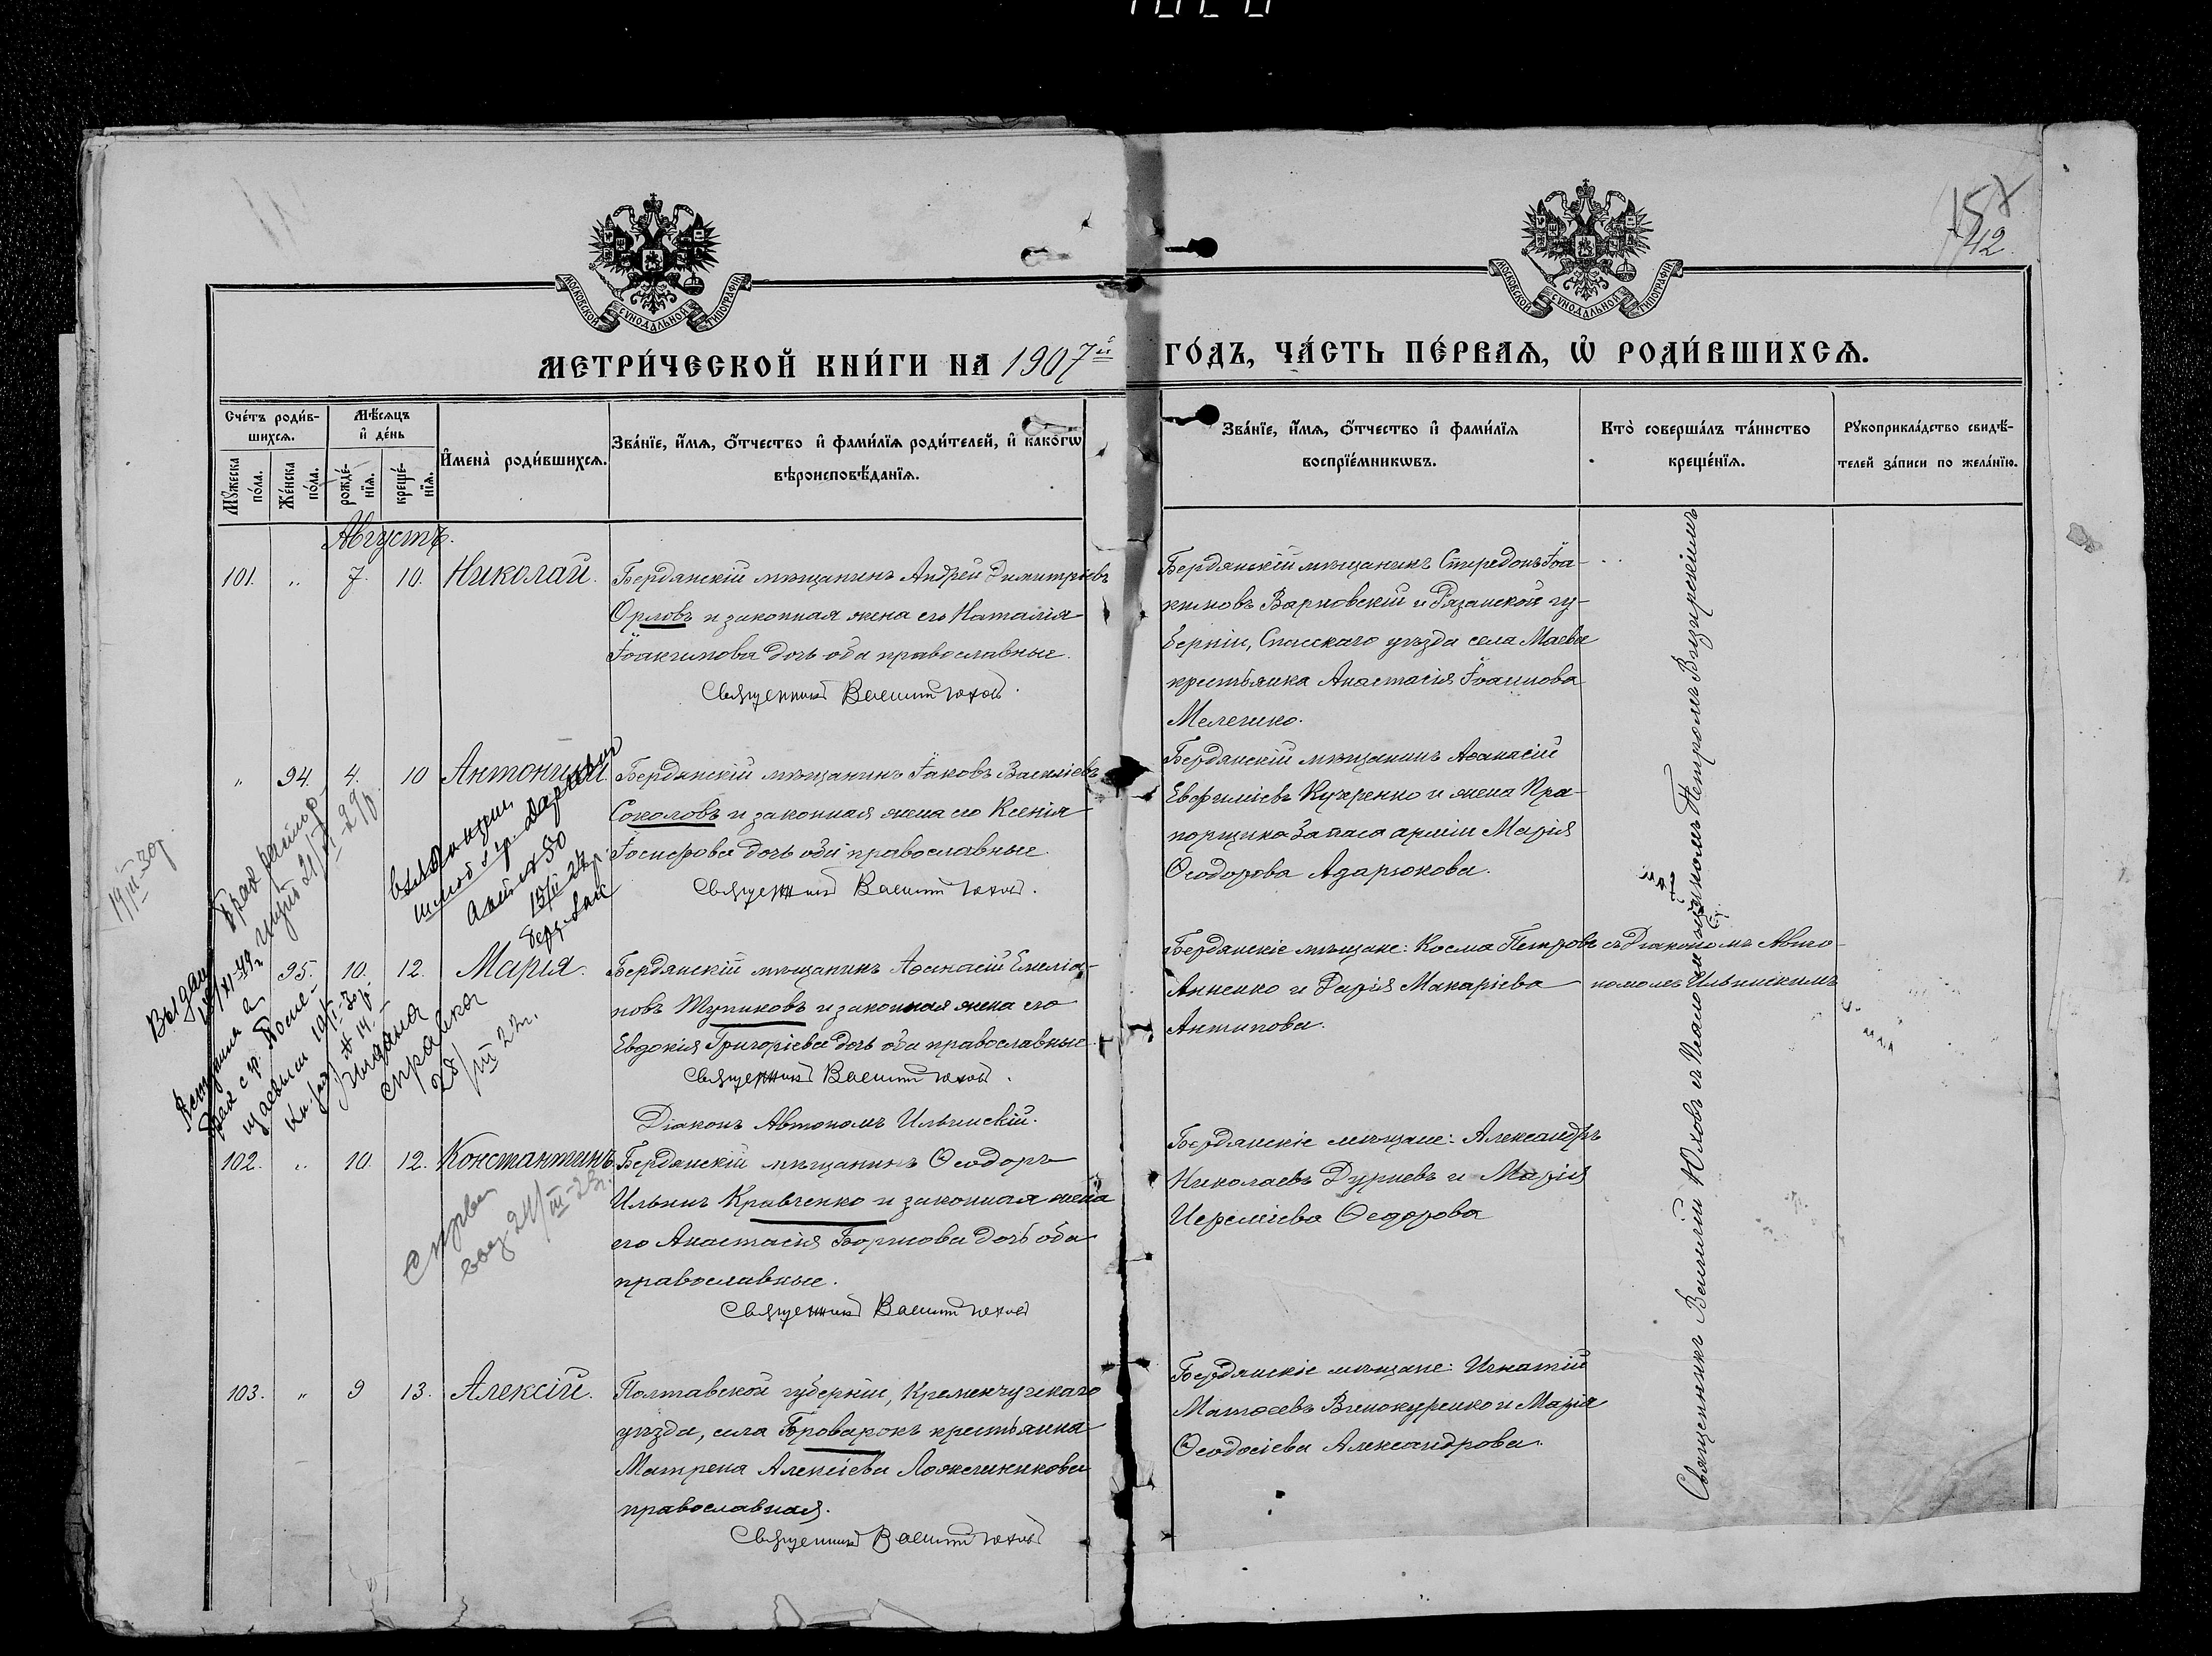 157
42
МОСКОВСКОЙ СѴНОДАЛЬНОЙ ТИПОГРАФІИ
МОСКОВСКОЙ СѴНОДАЛЬНОЙ ТИПОГРАФІИ
МЕТРИ́ЧЕСКОЙ КНИ́ГИ НА 1907й ГО́ДЪ, ЧА́СТЬ ПЕ́РВАѦ, Ѡ҆ РОДИ́ВШИХСѦ.
Сче́тъ роди́в-
шихсѧ.
Мѣ́сѧцъ
и҆ де́нь
Мꙋ́жеска
по́ла.
Же́нска
по́ла.
рожде́-
нїѧ.
креще́-
нїѧ.
И҆мена̀ роди́вшихсѧ.
Зва́нїе, и҆́мѧ, ѻ҆́тчество и҆ фами́лїѧ роди́телей, и҆ како́гѡ
вѣроисповѣ́данїѧ.
Зва́нїе, и҆́мѧ, ѻ҆́тчество и҆ фами́лїѧ
воспрїе́мникѡвъ.
Кто̀ соверша́лъ та́инство
креще́нїѧ.
Рꙋкоприкла́дство свидѣ́-
телей за́писи по жела́нїю.
Августъ.
101. „ 7. 10. Николай.
Бердянскій мѣщанинъ Андрей Димитріевъ
Орловъ и законная жена его Наталія
Іоакимова дочь оба православные.
Священникъ Василій Юховъ.
Бердянскій мѣщанинъ Спиридонъ Іоа-
кимовъ Варновскій и Рязанской гу-
берніи, Спасскаго уѣзда села Маева
крестьянка Анастасія Іоаннова
Мелешко.
„ 94. 4. 10 Антонина.
Бердянскій мѣщанинъ Іаковъ Василіевъ
Соколовъ и законная жена его Ксенія
Іосифова дочь оба православные.
Священникъ Василій Юховъ.
Бердянскій мѣщанинъ Аѳанасій
Евфиміевъ Кучеренко и жена Пра-
порщика Запаса арміи Марія
Ѳеодорова Адарюкова.
95. 10. 12. Марія.
Бердянскій мѣщанинъ Аѳанасій Емеліа-
новъ Тупиковъ и законная жена его
Евдокія Григоріева дочь оба православные.
Священникъ Василій Юховъ.
Діаконъ Автономъ Ильинскій.
Бердянскіе мѣщане: Косма Петровъ
Анненко и Дарія Макаріева
Антипова.
съ Діакономъ Авто-
номомъ Ильинскимъ
102. „ 10. 12. Константинъ.
Бердянскій мѣщанинъ Ѳеодоръ
Ильинъ Кравченко и законная жена
его Анастасія Борисова дочь оба
православные.
Священникъ Василій Юховъ
Бердянскіе мѣщане: Александръ
Николаевъ Дурневъ и Марія
Іереміева Ѳедорова
103. „ 9 13. Алексій.
Полтавской губерніи, Кременчугскаго
уѣзда, села Броварокъ крестьянка
Матрена Алексіева Ложешникова
православная.
Священникъ Василій Юховъ
Бердянскіе мѣщане: Игнатій
Матѳеевъ Винокуренко и Марія
Ѳеодосіева Александрова.
Священникъ Василій Юховъ съ Псаломщикомъ Петромъ
19/II 30г.
Выдана
справка
28/III 23г.
15/II 27г.
24/III-23г.